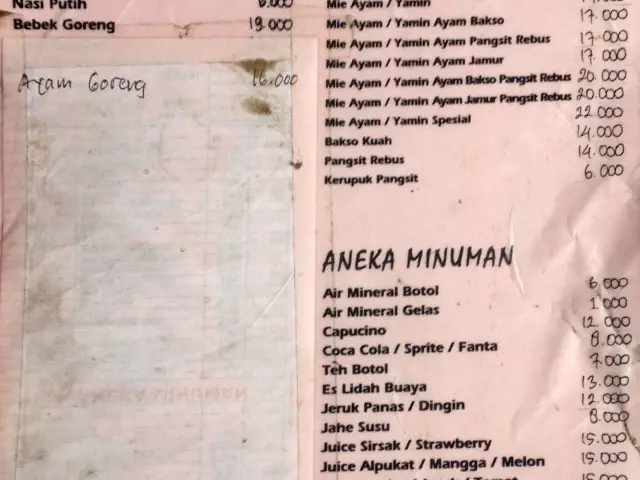 Nasi Putih 6.000
Bebek Goreng 19.000
Ayam Goreng 16.000
Mie Ayam / Yamin
Mie Ayam / Yamin Ayam Bakso 17.000
Mie Ayam / Yamin Ayam Pangsit Rebus 17.000
Mie Ayam / Yamin Ayam Jamur 17.000
Mie Ayam / Yamin Ayam Bakso Pangsit Rebus 20.000
Mie Ayam / Yamin Ayam Jamur Pangsit Rebus 20.000
Mie Ayam / Yamin Spesial 22.000
Bakso Kuah 14.000
Pangsit Rebus 14.000
Kerupuk Pangsit 6.000
ANEKA MINUMAN
Air Mineral Botol 6.000
Air Mineral Gelas 1.000
Capucino 12.000
Coca Cola / Sprite / Fanta 8.000
Teh Botol 7.000
Es Lidah Buaya 13.000
Jeruk Panas / Dingin 12.000
Jahe Susu 8.000
Juice Sirsak / Strawberry 15.000
Juice Alpukat / Mangga / Melon 15.000